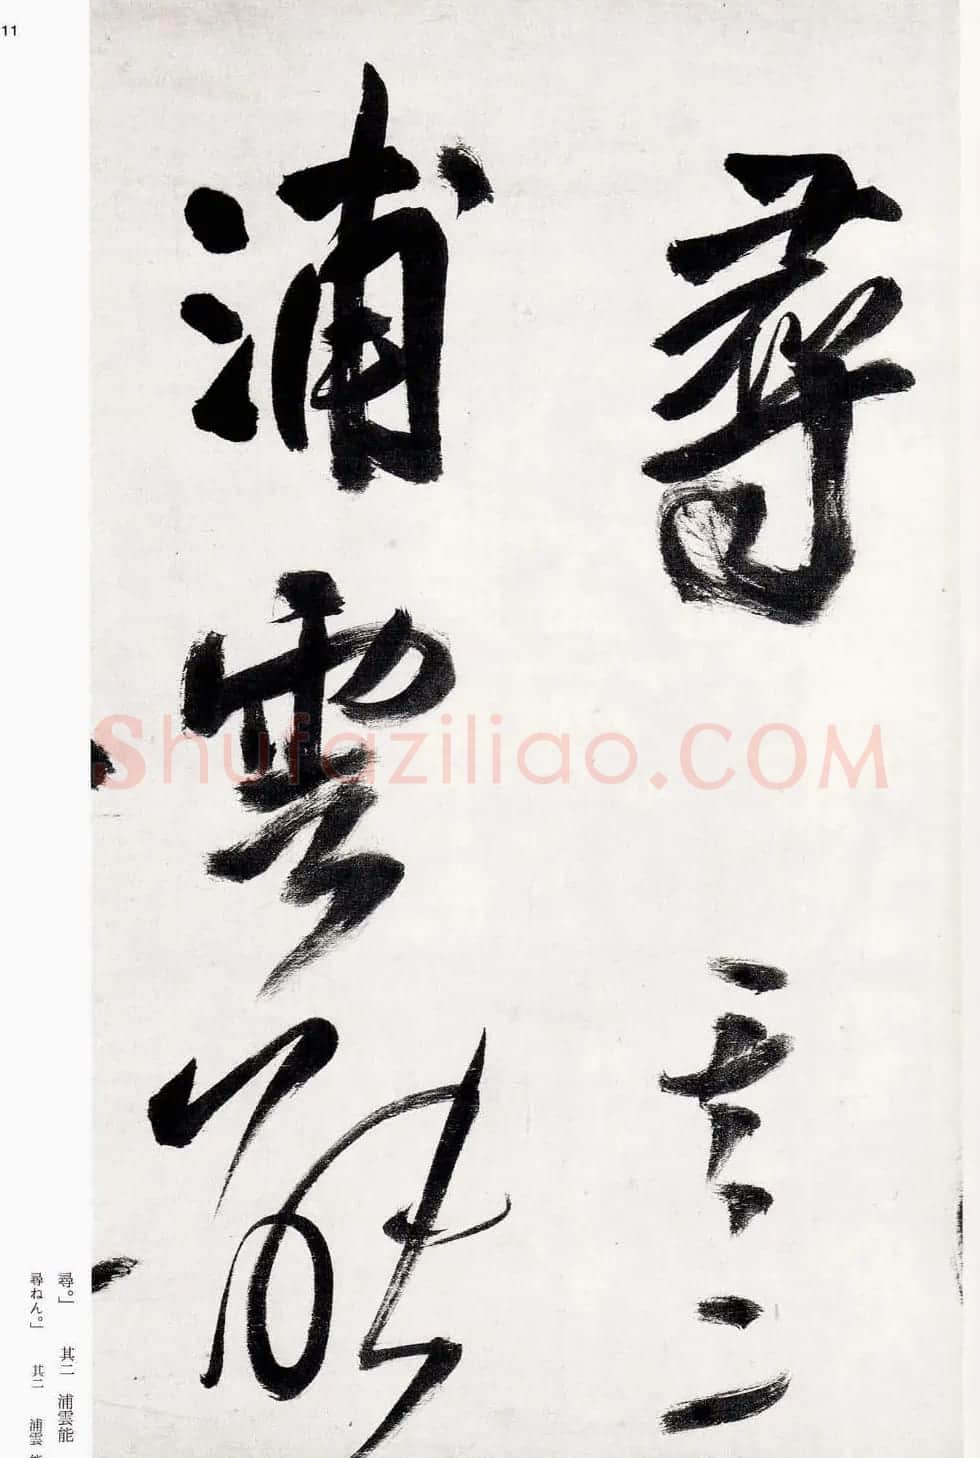 11
尋 其二
浦雲能
尋。」 其二 浦雲能
尋ねん。」 其二 浦雲
Shufaziliao.COM